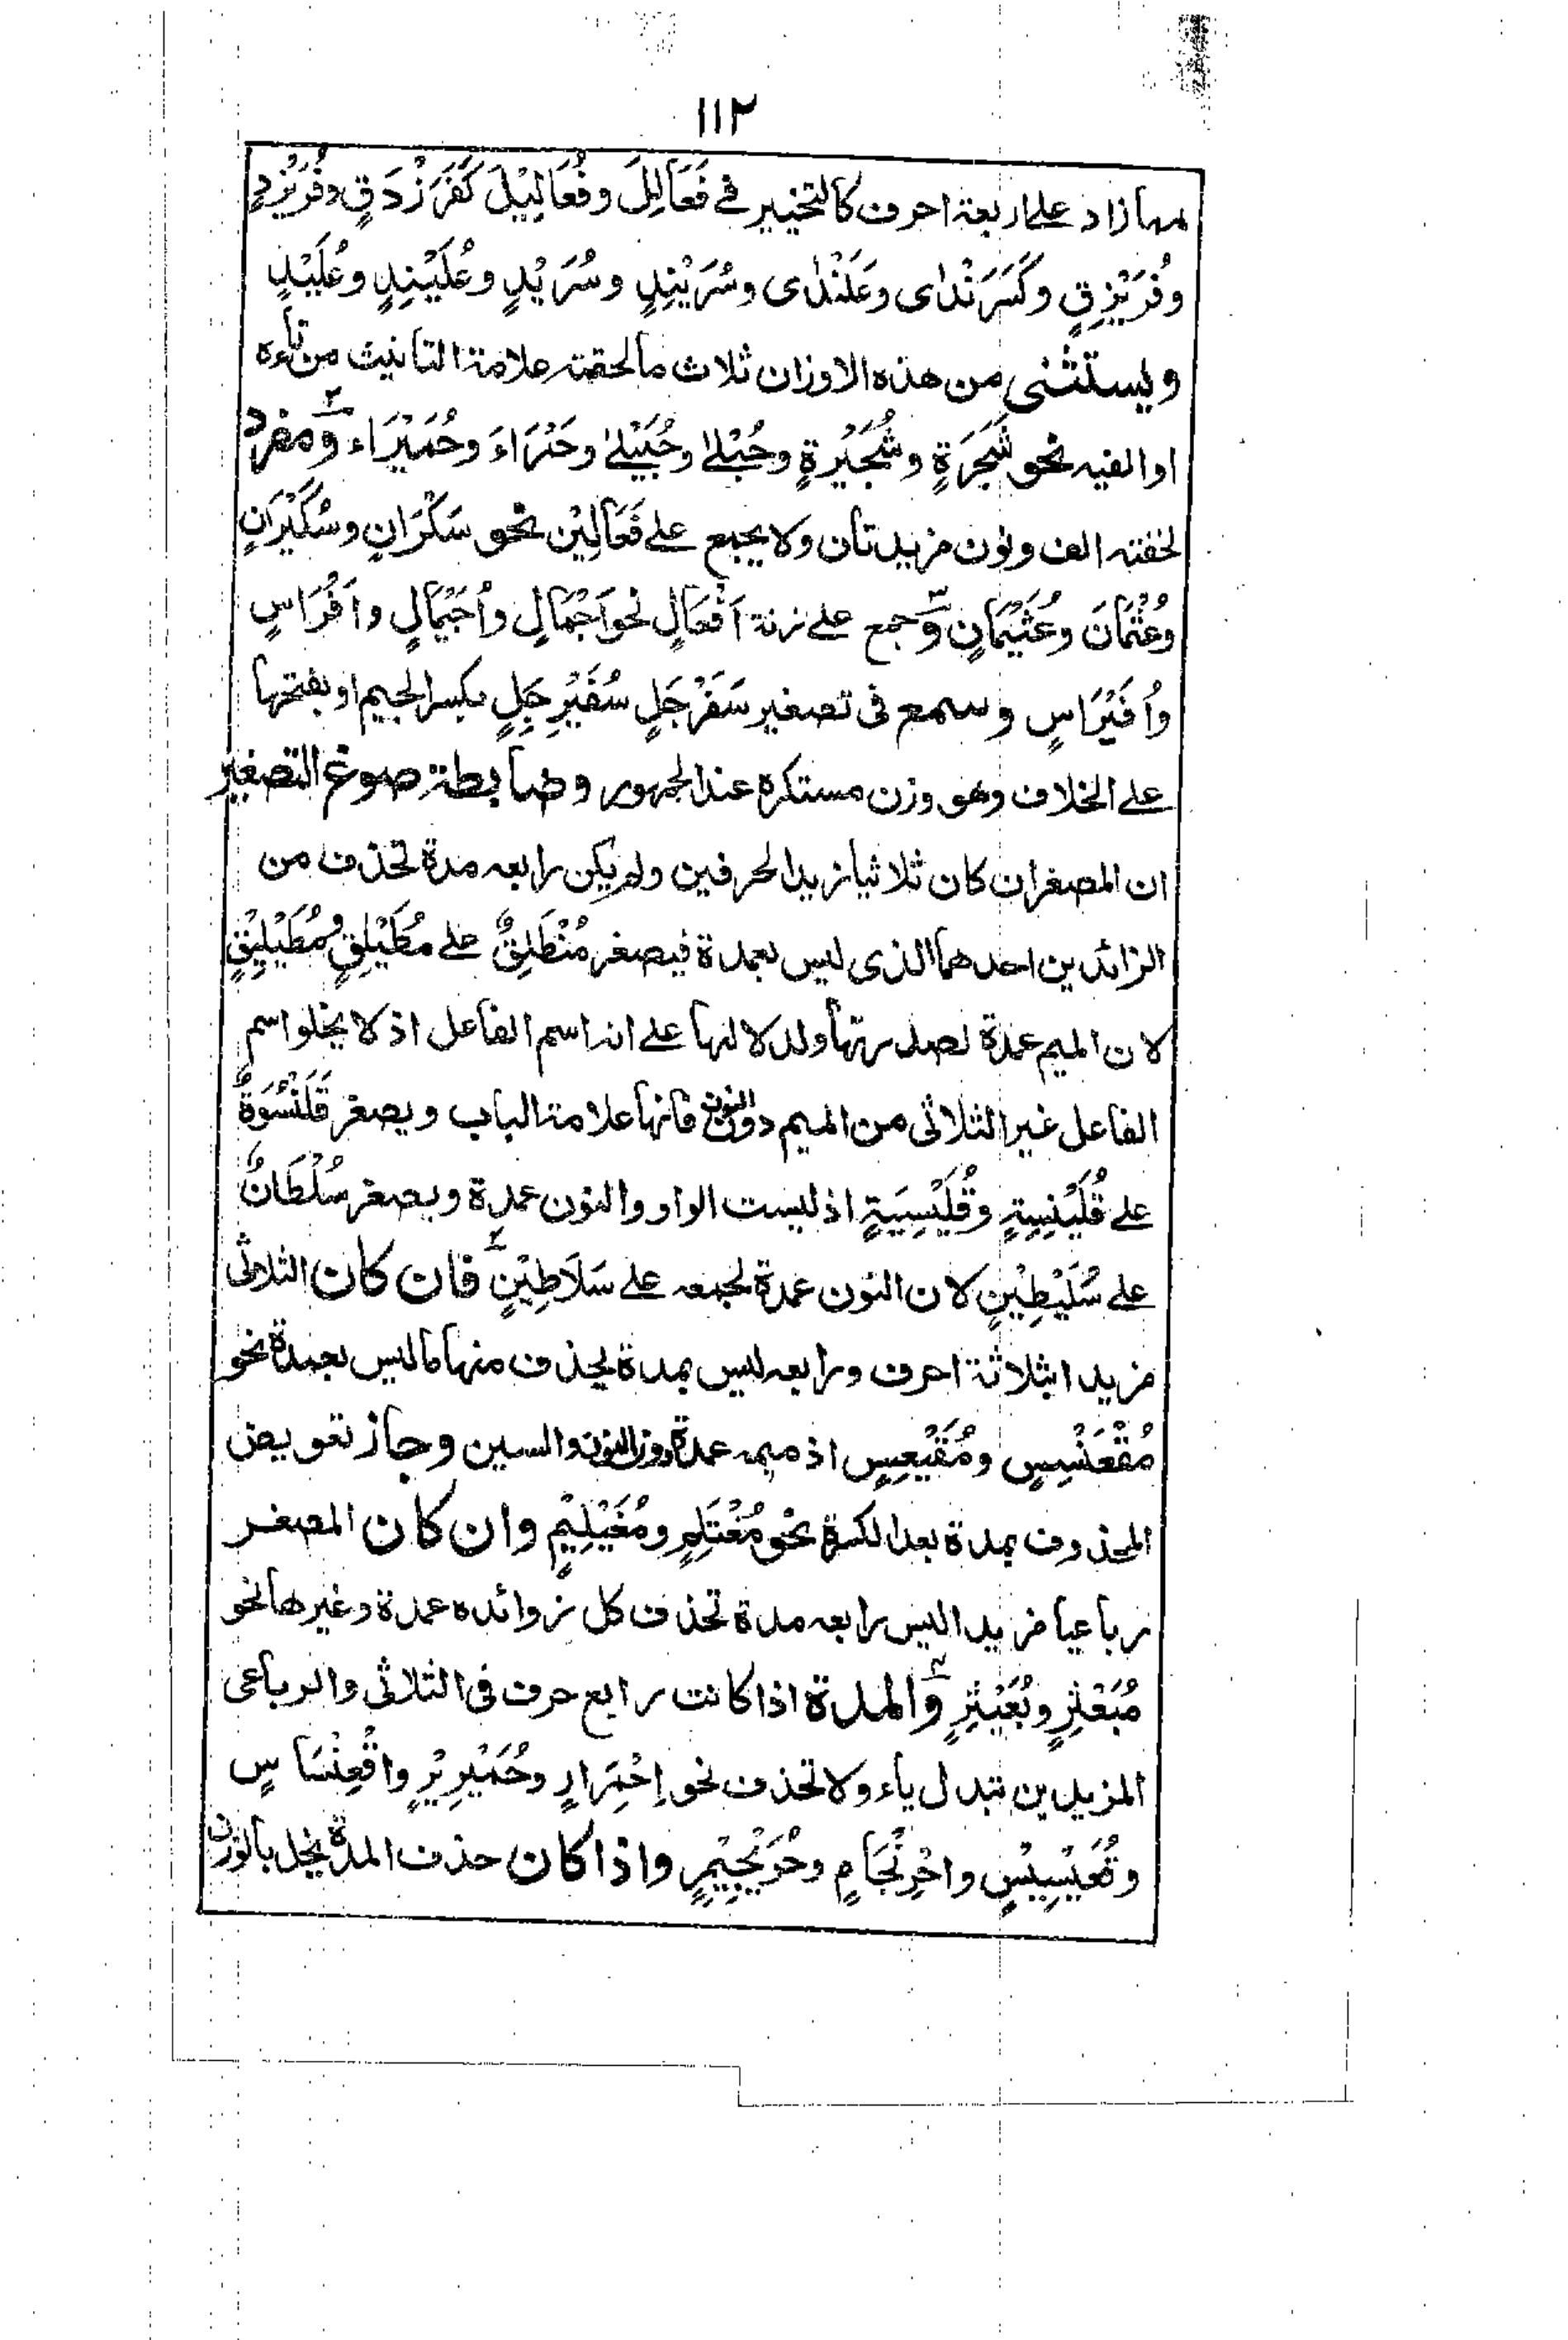 ١١٢
مما زاد على اربعة احرف كالتخيير فے فَعَالِلَ وفُعَالِيْلَ كَفَرَزْدَقٍ وفُرَيْزِدٍ
وفُرَيْزِقٍ وكَسَرَنْدٰى وعَلَنْدٰى وسُرَيْنِدٍ وسُرَيْدٍ وعُلَيْنِدٍ وعُلَيْدٍ
ويستثنى من هذه الاوزان ثلاث ما لحقته علامة التانيث من تاءه
او الفيه نحو شَجَرَةٍ وشُجَيْرَةٍ وحُبْلےٰ وحُبَيْلےٰ وحَمْرَاءَ وحُمَيْرَاء ٢ ومفرد
لحقته الف ونون مزيدتان ولا يجمع علے فَعَالِيْن نحو سَكْرَانٍ وسُكَيْرَانٍ
وعُثْمَانَ وعُثَيْمَانٍ ٣ وجمع علے زنة اَفْعَالٍ نحو اَجْمَالٍ واُجَيْمَالٍ واَفْرَاسٍ
واُفَيْرَاسٍ وسمع فى تصغير سَفَرْجَلٍ سُفَيْرِجِلٍ بكسر الجيم او بفتحها
علے الخلاف وهو وزن مستكره عند الجمهور وضابطة صوغ التصغير
ان المصغر ان كان ثلاثيا مزيد الحرفين ولم يكن رابعه مدة تحذف من
الزائدين احدهما الذى ليس بعمدة فيصغر مُنْطَلِقٌ علے مُطَيْلِقٍ ومُطَيْلِيْقٍ
لان الميم عمدة لصدارتها ولدلالتها علے انه اسم الفاعل اذ لا يخلو اسم
الفاعل غير الثلاثى من الميم دون النون فانها علامة الباب ويصغر قَلَنْسُوَةٌ
علے قُلَيْنِسِةٍ وقُلَيْسِيَةٍ اذ ليست الواو والنون عمدة ويصغر سُلْطَانٌ
علے سُلَيْطِيْنٍ لان النون عمدة لجمعه علے سَلَاطِيْنٍ ٢ فان كان الثلاثى
مزيدا بثلاثة احرف ورابعه ليس بمدة يحذف منها ما ليس بعمدة نحو
مُقْعَنْسِسٍ ومُقَيْعِسٍ اذ ميمه عمدة دون النون والسين وجاز تعويض
المحذوف بمدة بعد الكسرة نحو مُغْتَلِمٍ ومُغَيْلِيْمٍ وان كان المصغر
رباعيا مزيدا ليس رابعه مدة تحذف كل زوائده عمدة وغيرها نحو
مُبَعْثِرٍ وبُعَيْثِرٍ ٣ والمدة اذا كانت رابع حرف فى الثلاثى والرباعى
المزيدين تبدل ياء ولا تحذف نحو اِحْمِرَارٍ وحُمَيْرِيْرٍ واقْعِنْسَاسٍ
وقُعَيْسِيْسٍ واحْرِنْجَامٍ وحُرَيْجِيْمٍ واذا كان حذف المدة يخل بالوزن